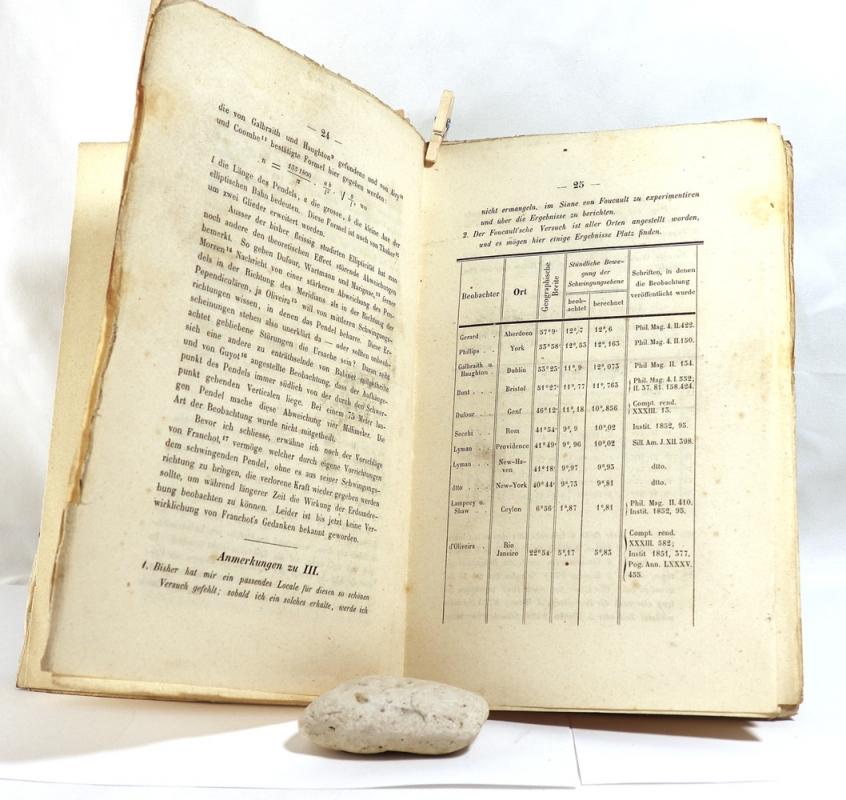 — 24 —
die von Galbraith und Haughton⁹ gefundene und von
und Coombe¹¹ bestätigte Formel hier gegeben werden:
l die Länge des Pendels, a die grosse, b die kleine Axe der
elliptischen Bahn bedeuten. Diese Formel ist auch von
um zwei Glieder erweitert worden.
Ausser der bisher fleissig studirten Ellipticität hat man
noch andere den theoretischen Effect störende Abweichungen
bemerkt. So geben Dufour, Wartmann und Marignac,¹³ ferner
Morren¹⁴ Nachricht von einer stärkeren Abweichung des Pen-
dels in der Richtung des Meridians als in der Richtung der
Pependiculären, ja Oliveira¹⁵ will von mittleren Schwingungs-
richtungen wissen, in denen das Pendel beharre. Diese Er-
scheinungen stehen also unerklärt da — oder sollten unbeob-
achtet gebliebene Störungen die Ursache sein? Daran reiht
sich eine andere zu enträthselnde von Babinet mitgetheilte
und von Guyot¹⁶ angestellte Beobachtung, dass der Aufhänge-
punkt des Pendels immer südlich von der durch den Schwer-
punkt gehenden Verticalen liege. Bei einem 75 Meter lan-
gen Pendel mache diese Abweichung vier Millimeter. Die
Art der Beobachtung wurde nicht mitgetheilt.
Bevor ich schliesse, erwähne ich noch der Vorschläge
von Franchot,¹⁷ vermöge welcher durch eigene Vorrichtungen
dem schwingenden Pendel, ohne es aus seiner Schwingungs-
richtung zu bringen, die verlorene Kraft wieder gegeben werden
sollte, um während längerer Zeit die Wirkung der Erdumdre-
hung beobachten zu können. Leider ist bis jetzt keine Ver-
wirklichung von Franchot's Gedanken bekannt geworden.
Anmerkungen zu III.
1. Bisher hat mir ein passendes Locale für diesen so schönen
Versuch gefehlt; sobald ich ein solches erhalte, werde ich
— 25 —
nicht ermangeln, im Sinne von Foucault zu experimentiren
und über die Ergebnisse zu berichten.
2. Der Foucault'sche Versuch ist aller Orten angestellt worden,
und es mögen hier einige Ergebnisse Platz finden.
Beobachter Ort Geographische Breite Stündliche Bewe-
gung der
Schwingungsebene
beob-
achtet berechnet Schriften, in denen
die Beobachtung
veröffentlicht wurde
Gerard . . . Aberdeen 57°9' 12°,7 12°,6 Phil. Mag. 4. II.422.
Phillips . . York 53°58' 12°,53 12°,163 Phil. Mag. 4. II.150.
Galbraith u.
Haughton . . Dublin 53°23' 11°,9 12°,073 Phil Mag. II. 134.
Bunt . . . . Bristol 51°27' 11°,77 11°,763 Phil. Mag. 4. I. 552;
II. 37. 81. 158.424.
Dufour . . . Genf 46°12' 11°,18 10°,856 Compt. rend.
XXXIII. 13.
Secchi . . . Rom 41°54' 9°,9 Instit. 1852, 95.
Lyman . . . Providence 41°49' 9°,96 10°,02 Sill. Am. J. XII. 398.
Lyman . . . New-Ha-
ven 41°18' 9°,97 9°,95 dito.
dito . . . . New-York 40°44' 9°,73 9°,81 dito.
Lamprey u.
Shaw . . . Ceylon 6°56' 1°,87 1°,81 Phil. Mag. II. 410.
Instit. 1852, 95.
d'Oliveira . . Rio
Janeiro 22°54' 5°,17 5°,83 Compt. rend.
XXXIII. 582;
Instit 1851, 377,
Pog. Ann. LXXXV.
455.